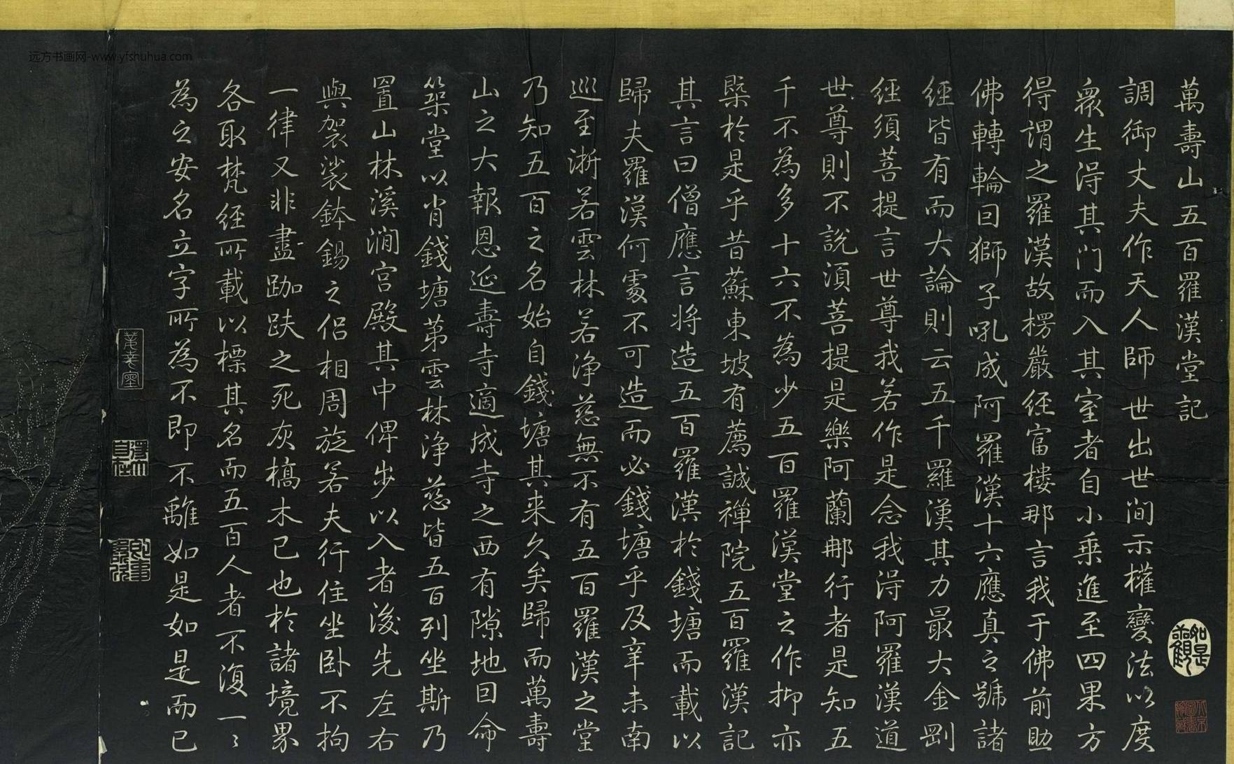 萬壽山五百羅漢堂記
調御丈夫作天人師世出世間示權變法以度
衆生得其門而入其室者自小乗進至四果方
得謂之羅漢故楞嚴经富樓那言我于佛前助
佛轉輪曰獅子吼成阿羅漢十六應真之號諸
經皆有而大論則云五千羅漢其力最大金剛
经須菩提言世尊我若作是念我得阿羅漢道
世尊則不說湏菩提是樂阿蘭那行者是知五
千不為多十六不為少五百羅漢堂之作抑亦
槩於是乎昔蘇東坡有薦誠禪院五百羅漢記
其言曰僧應言将造五百羅漢於錢塘而載以
歸夫羅漢何處不可造而必錢塘乎及辛未南
巡至浙若雲林若浄慈無不有五百羅漢之堂
乃知五百之名始自錢塘其来久矣歸而萬壽
山之大報恩延壽寺適成寺之西有隙地囙命
築堂以肖錢塘第雲林浄慈皆五百列坐斯乃
置山林溪澗宫殿其中俾步以入者後先左右
與袈裟鉢錫之侣相周旋若夫行住坐卧不拘
一律又非盡跏趺之死灰槁木已也於諸境界
各取梵經所載以標其名而五百人者不復一々
為之安名立字所為不即不離如是如是而已
如是觀
远方书画网-www.yfshuhua.com